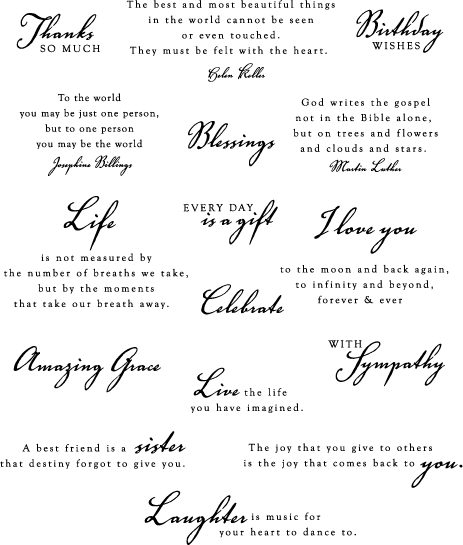 Thanks
SO MUCH
The best and most beautiful things
in the world cannot be seen
or even touched.
They must be felt with the heart.
Helen Keller
Birthday
WISHES
To the world
you may be just one person,
but to one person
you may be the world
Josephine Billings
Blessings
God writes the gospel
not in the Bible alone,
but on trees and flowers
and clouds and stars.
Martin Luther
Life
is not measured by
the number of breaths we take,
but by the moments
that take our breath away.
EVERY DAY
is a gift
I love you
to the moon and back again,
to infinity and beyond,
forever & ever
Celebrate
Amazing Grace
Live the life
you have imagined.
WITH
Sympathy
A best friend is a sister
that destiny forgot to give you.
The joy that you give to others
is the joy that comes back to you.
Laughter is music for
your heart to dance to.